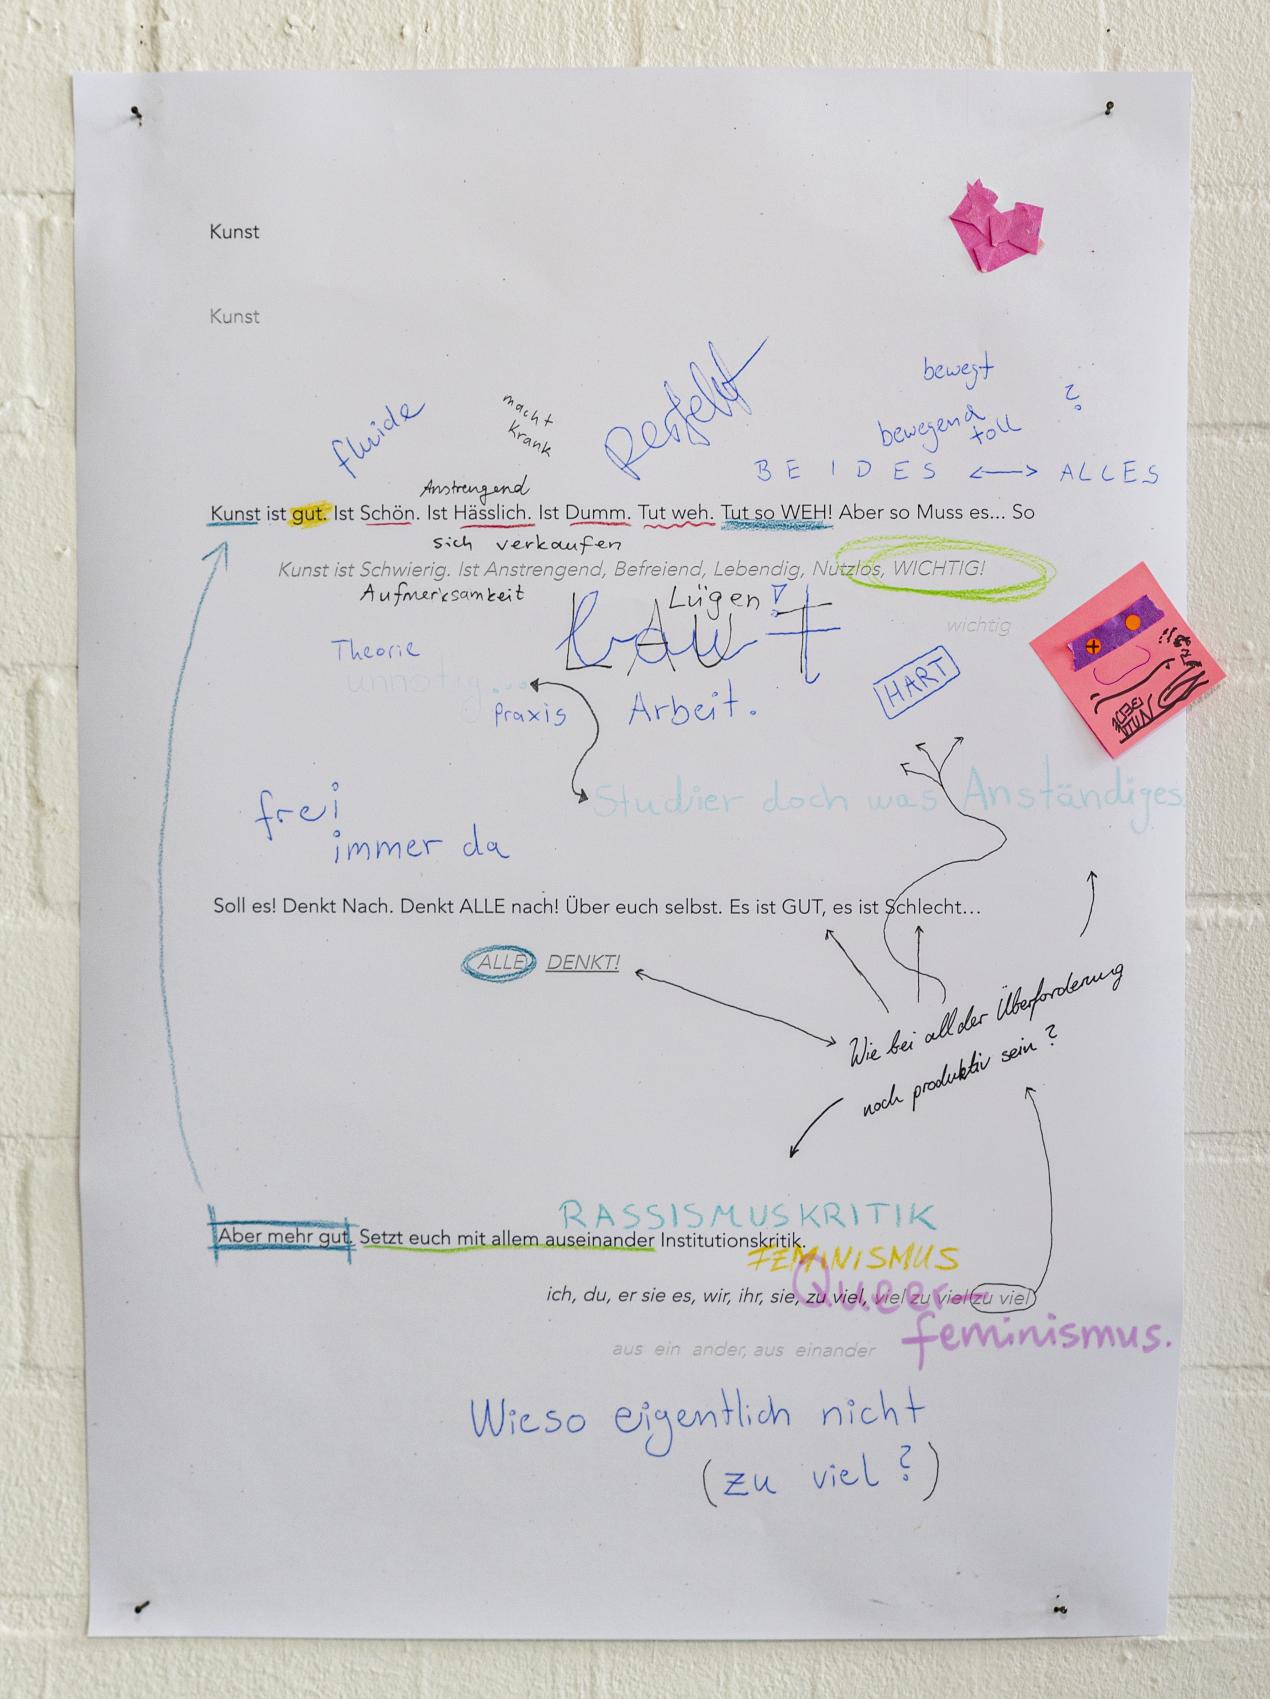 Kunst
Kunst
bewegt
?
fluide
macht
krank
Perfekt
bewegend
toll
BEIDES <--> ALLES
Anstrengend
Kunst ist gut. Ist Schön. Ist Hässlich. Ist Dumm. Tut weh. Tut so WEH! Aber so Muss es... So
sich verkaufen
Kunst ist Schwierig. Ist Anstrengend, Befreiend, Lebendig, Nutzlos, WICHTIG!
Aufmerksamkeit
Lügen
LAUT
wichtig
Theorie
unnötig...
HART
Praxis
Arbeit.
Studier doch was Anständiges
frei
immer da
Soll es! Denkt Nach. Denkt ALLE nach! Über euch selbst. Es ist GUT, es ist Schlecht...
ALLE DENKT!
Wie bei all der Überforderung
noch produktiv sein?
RASSISMUSKRITIK
Aber mehr gut. Setzt euch mit allem auseinander Institutionskritik.
FEMINISMUS
ich, du, er sie es, wir, ihr, sie, zu viel, viel zu viel zu viel
Queer-
feminismus.
aus ein ander, aus einander
Wieso eigentlich nicht
(zu viel?)